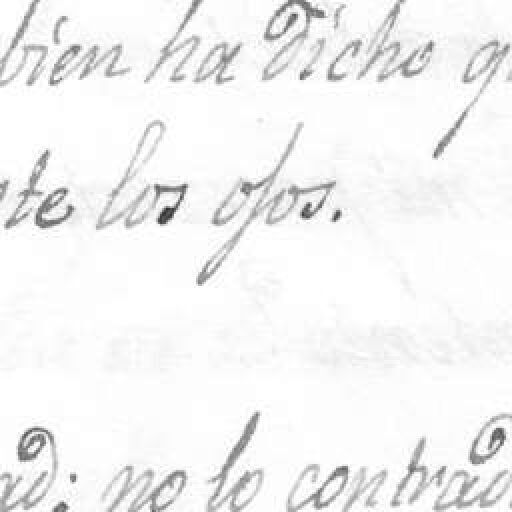 bien ha dicho q
te los ojos.
ad: no lo contrad